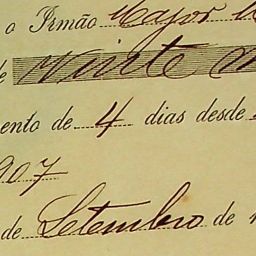 o Irmão Major
Vinte
ento de 4 dias desde
907
de Setembro de